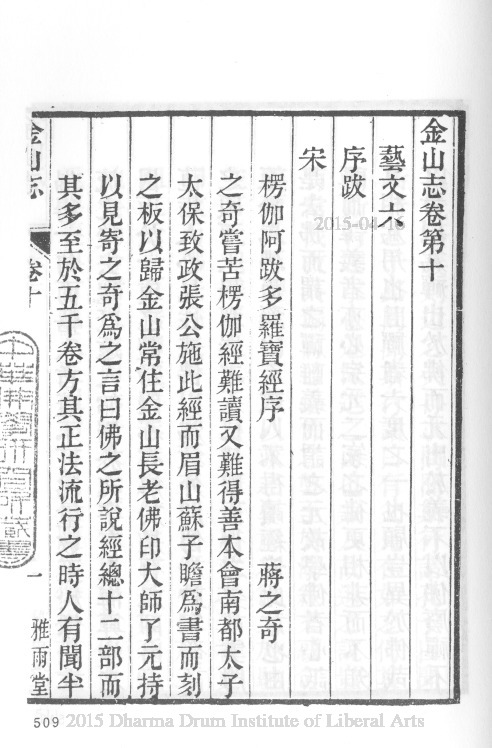 金山志卷第十
藝文六
序跋
宋
楞伽阿跋多羅寶經序 蔣之奇
之奇嘗苦楞伽經難讀又難得善本會南都太子
太保致政張公施此經而眉山蘇子瞻爲書而刻
之板以歸金山常住金山長老佛印大師了元持
以見寄之奇爲之言曰佛之所說經總十二部而
其多至於五千卷方其正法流行之時人有聞半
金山志
卷十
一
雅雨堂
2015-04-16
509 2015 Dharma Drum Institute of Liberal Arts